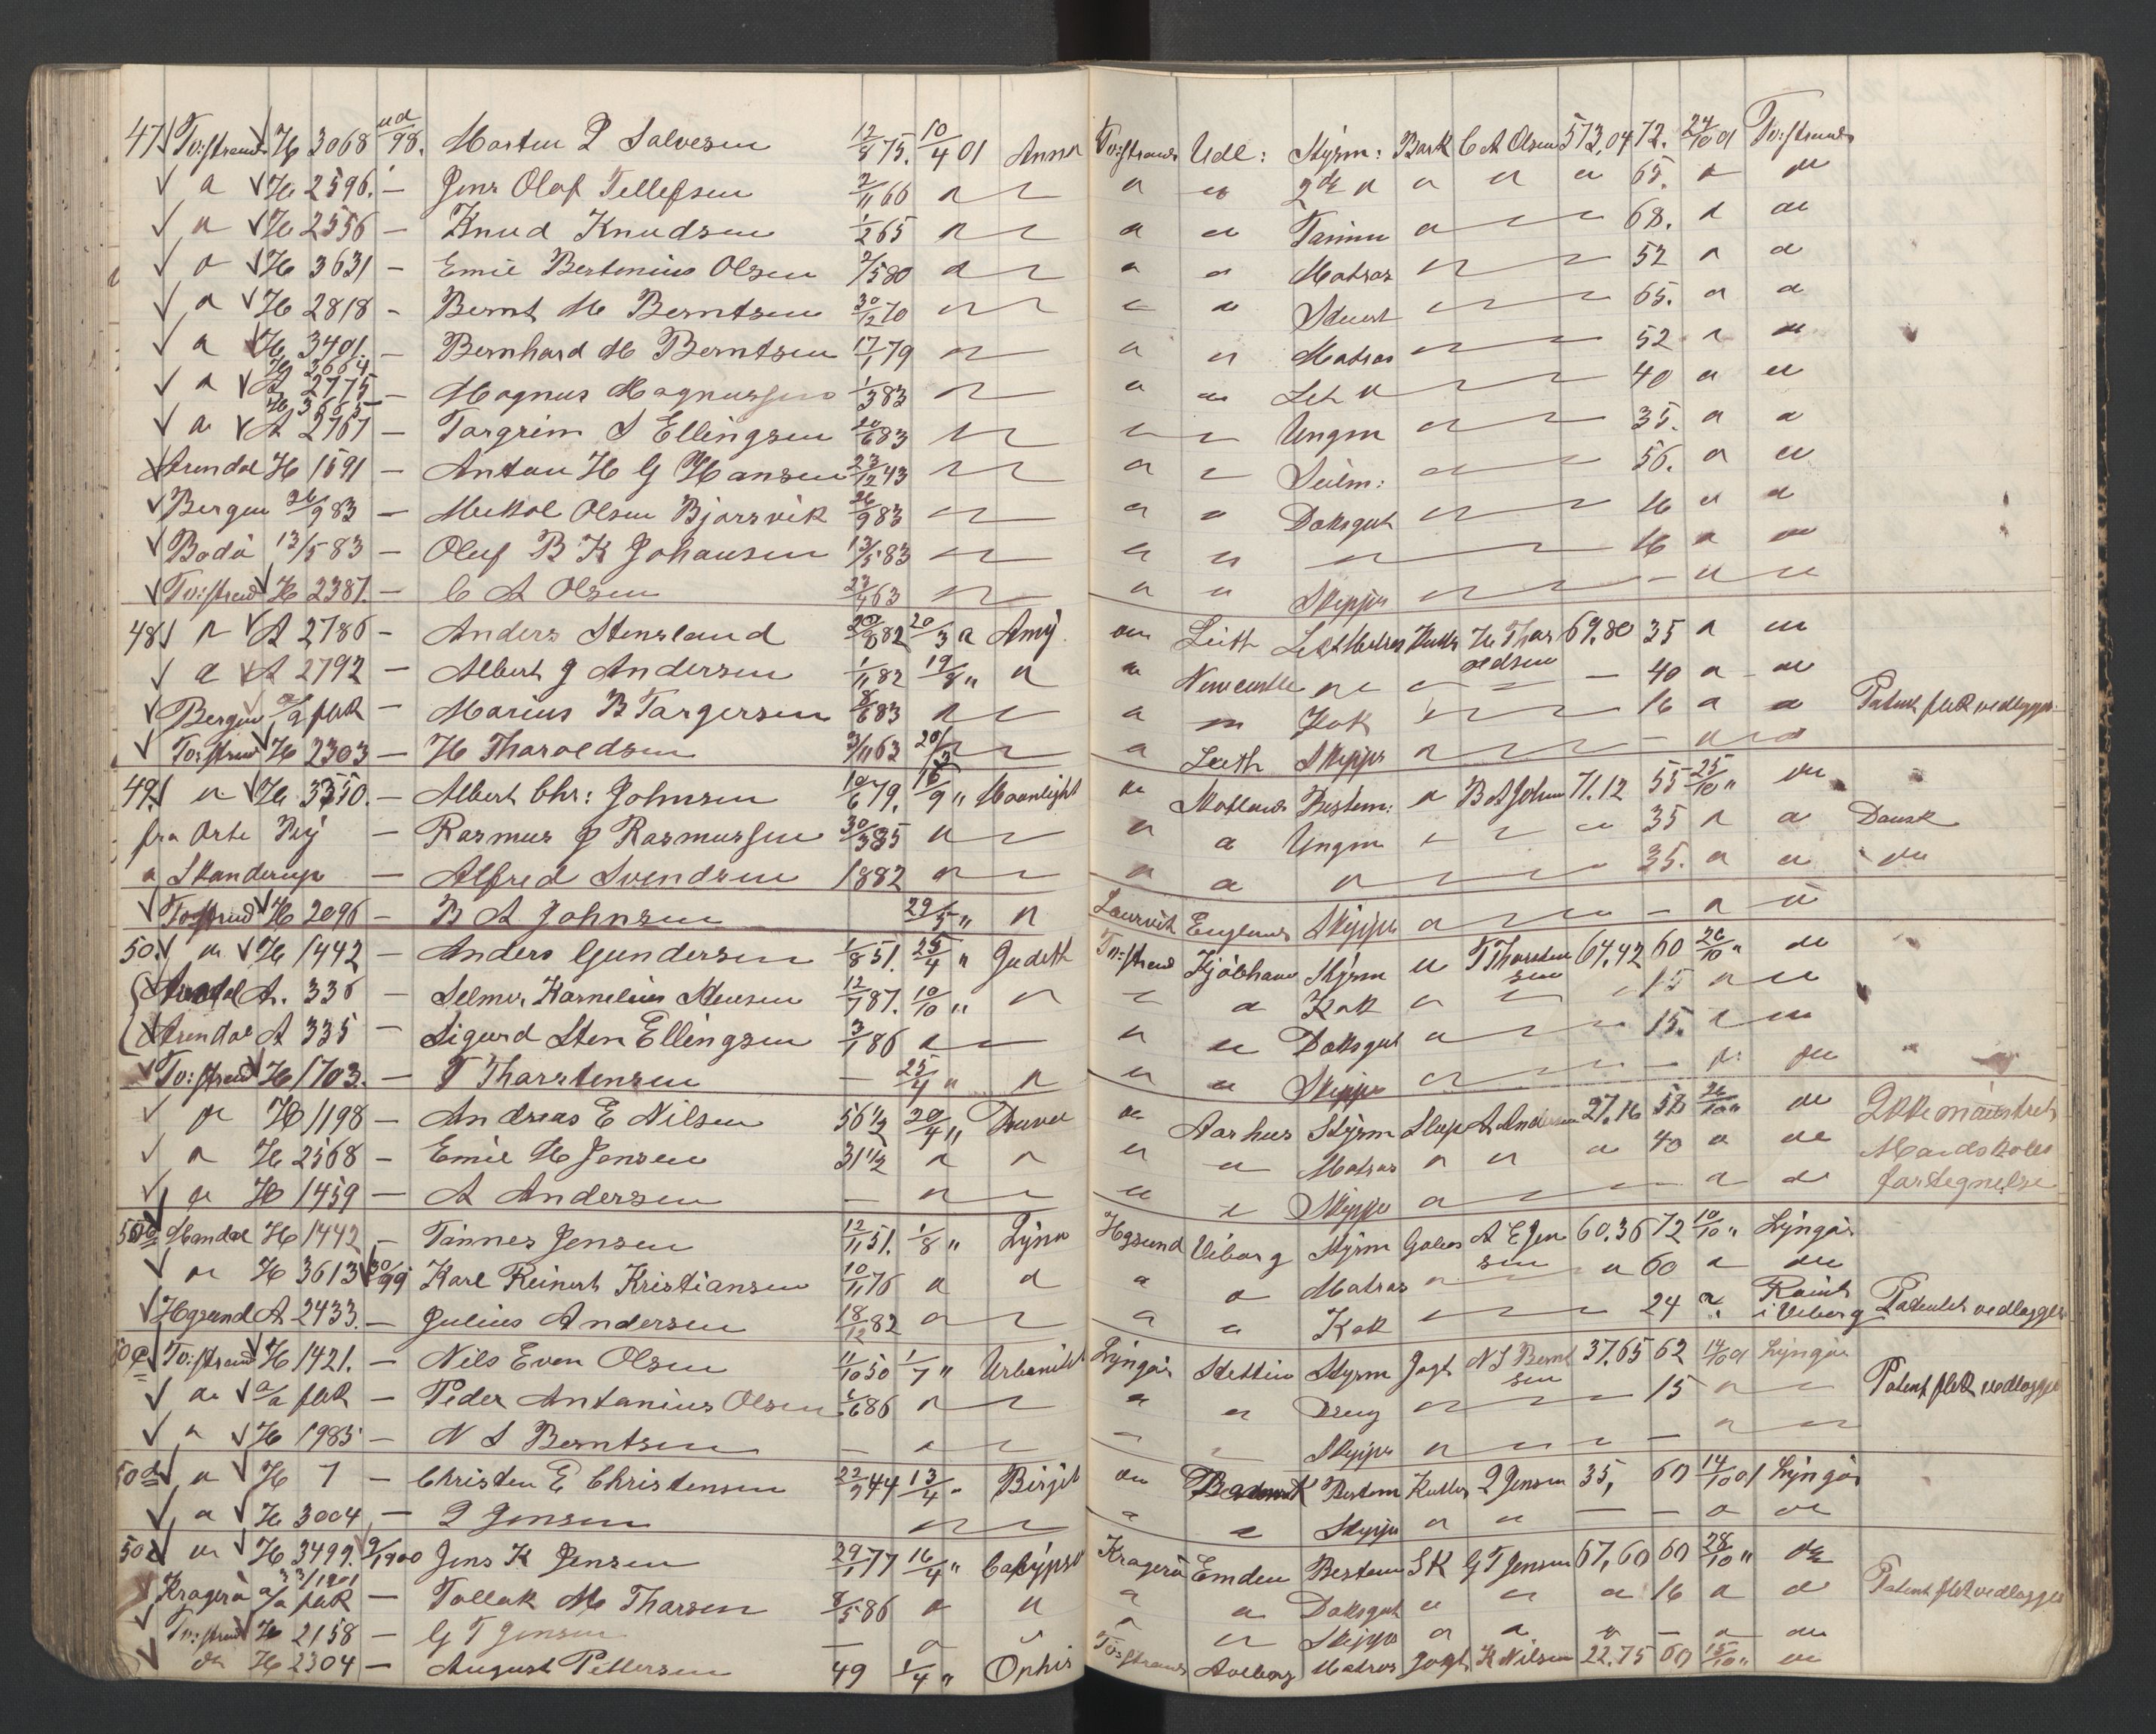 47 Tv:strand H 3068 ud/98. Morten P Salvesen 12/8 75. 10/4 01 Anna Tv:strand Udl: Styrm: Bark C A Olsen 573,04 72. 24/10 01 Tv:strand
" H 2596. — Jens Olaf Tellefsen 2/11 66 " " " 2de " " " " 65. " "
" H 2556 — Knud Knudsen 1/2 65 " " " Tømm " 68. " "
" H 3631 — Emil Bertenius Olsen 2/5 80 " " " Matros " 52 " "
" H 2818 — Bernt M Berntsen 30/12 70 " " " Stuert " 65. " "
" H 3401. — Bernhard M Berntsen 17/1 79 " " " Matros " 52 " "
H 2664
" A 2775 — Magnus Magnussen 1/3 83 " " " Let " " 40 " "
" A 2767 — Torgrim S Ellingsen 20/6 83 " " " Ungm " 35. " "
Arendal H 1591 — Anton H G Hansen 23/12 43 " " " Seilm: " 56. " "
Bergen 26/9 83 — Mikkal Olsen Bjorsvik 26/9 83 " " " Dæksgut " 16 " "
Bodö 13/5 83 — Oluf B K Johansen 13/5 83 " " " " 16 " "
Tv:strand H 2387. — C A Olsen 23/4 63 " " " Skipper " — " "
48 " A 2786 — Anders Stensland 20/8 82 20/3 " Amy. do Leith Let Matros Kutter H Thoroldsen 69.80 35 " "
" A 2792 — Albert J Andersen 1/11 82 19/8 " " " Newcastle " " — 40 " "
Bergen a/a flk — Marius B Torgersen 8/6 83 " " " Kok " 16 " " Patent flk vedlagges.
Tv:strand H 2303 — H Thoroldsen 3/11 63 20/3 " " Leith Skipper " — " "
49. " H 3350. — Albert Chr: Johnsen 10/6 79. 16/9 " Moonlight do Skotland Bestm: " B A Johnsen 71.12 55 25/10 " do
fra Orte Ry — Rasmus J Rasmussen 30/3 85 " " " Ungm " 35 " " Dansk
" Skanderup — Alfred Svendsen 1882 " " " " 35. " " do
Tv:strand H 2096 — B A Johnsen 29/5 " " Laurvik England Skipper " — " "
50. " H 1442 — Anders Gundersen 1/8 51. 25/4 " Judith Tv:strand Kjöbhavn Styrm " T Thorstensen 64,42 60 26/10 " do
Arendal A. 336 — Selmer Kornelius Stensen 12/7 87. 10/10 " " " " Kok " 15 " "
Arendal A 335 — Sigurd Sten Ellingsen 3/1 86 " " " Dæksgut " 15. " "
Tv:strand H 1703. — T Thorstensen — 25/4 " " " " Skipper " — " do
" H 1198 — Andreas E Nilsen 56 1/2 20/4 " Duva do Aarhus Styrm Slup A Andersen 27.16 58 26/10 " do Ikke mønstret
" H 2568 — Emil M Jensen 31 1/2 " " " " Matros " " " 40 " do Mandskabs
" H 1459 — A Andersen — " " " Skipper " " " fortegnelse
50b Mandal H 1442 — Tönnes Jensen 12/11 51. 1/8 " Lyna Hgsund Viborg Styrm Galeas A E Jensen 60.36 72 10/10 " Lyngør
" H 3613 30/99 Karl Reinert Kristiansen 10/11 76 " " " " Matros " " 60 " do
Hgsund A 2433. — Julius Andersen 18/12 82 " " " Kok " 24 " Römt i Viborg Patentet vedlagges
50c Tv:strand H 1421. — Nils Even Olsen 11/10 50 1/7 " Lyngör Stettin Styrm Jagt N S Berntsen 37.65 62 14/10 01 Lyngör
" a/a flk — Peder Antonius Olsen 2/6 86 " " " Dreng " 15 " " Patent flk vedlagges
" H 1985 — N S Berntsen — " " " Skipper " — " "
50d " H 7 — Christen E Christensen 22/9 44 13/4 " Birgit do Bestem Kutter J Jensen 35, 60 14/10 01 Lyngör
" H 3004 — J Jensen " " " Skipper " " — — " do
50e " H 3499. 9/1900 Jens K Jensen 29/1 77 16/4 " Calypso Kragerö Emden Bestem SK G T Jensen 67,60 60 28/10 " do
Kragerö a/a flk 23/1901 — Tollak M Thorsen 8/5 86 " " " " Dæksgut " " " 16 " " Patent flk vedlagges
Tv:strand H 2158 — G T Jensen — " " " " Skipper " " " — " do
do H 2304 — August Pettersen 49 1/4 " Ophir Tv:strand Aalborg Matros Jagt K Nilsen 22.75 60 15/10 " do